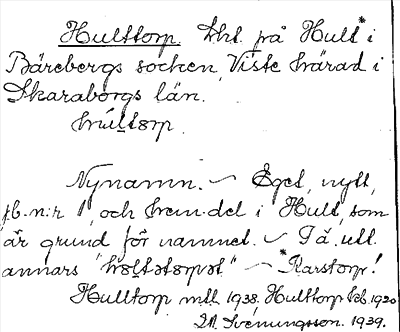 Hulttorp. tht. på Hult* i
Bärebergs socken, Viste härad i
Skaraborgs län.
húltorp.
Nynamn. ~ Eget, nytt,
jb.n:r 1, och hem.del i Hult, som
är grund för namnet. ~ Två utt.
annars ~ *Rarstorp!
Hulltorp mtl 1938. Hulttorp kb. 1920
Svenungsson. 1939.